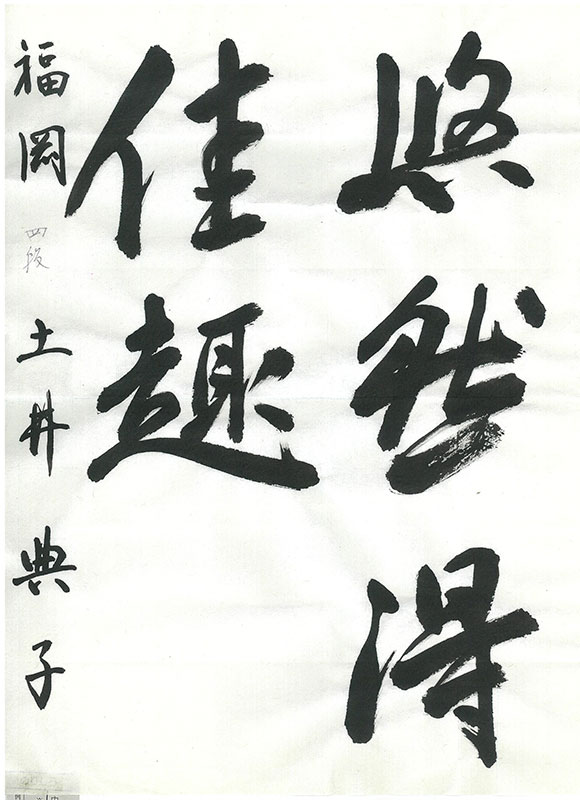 悠然得
佳趣
福岡 四段 土井典子